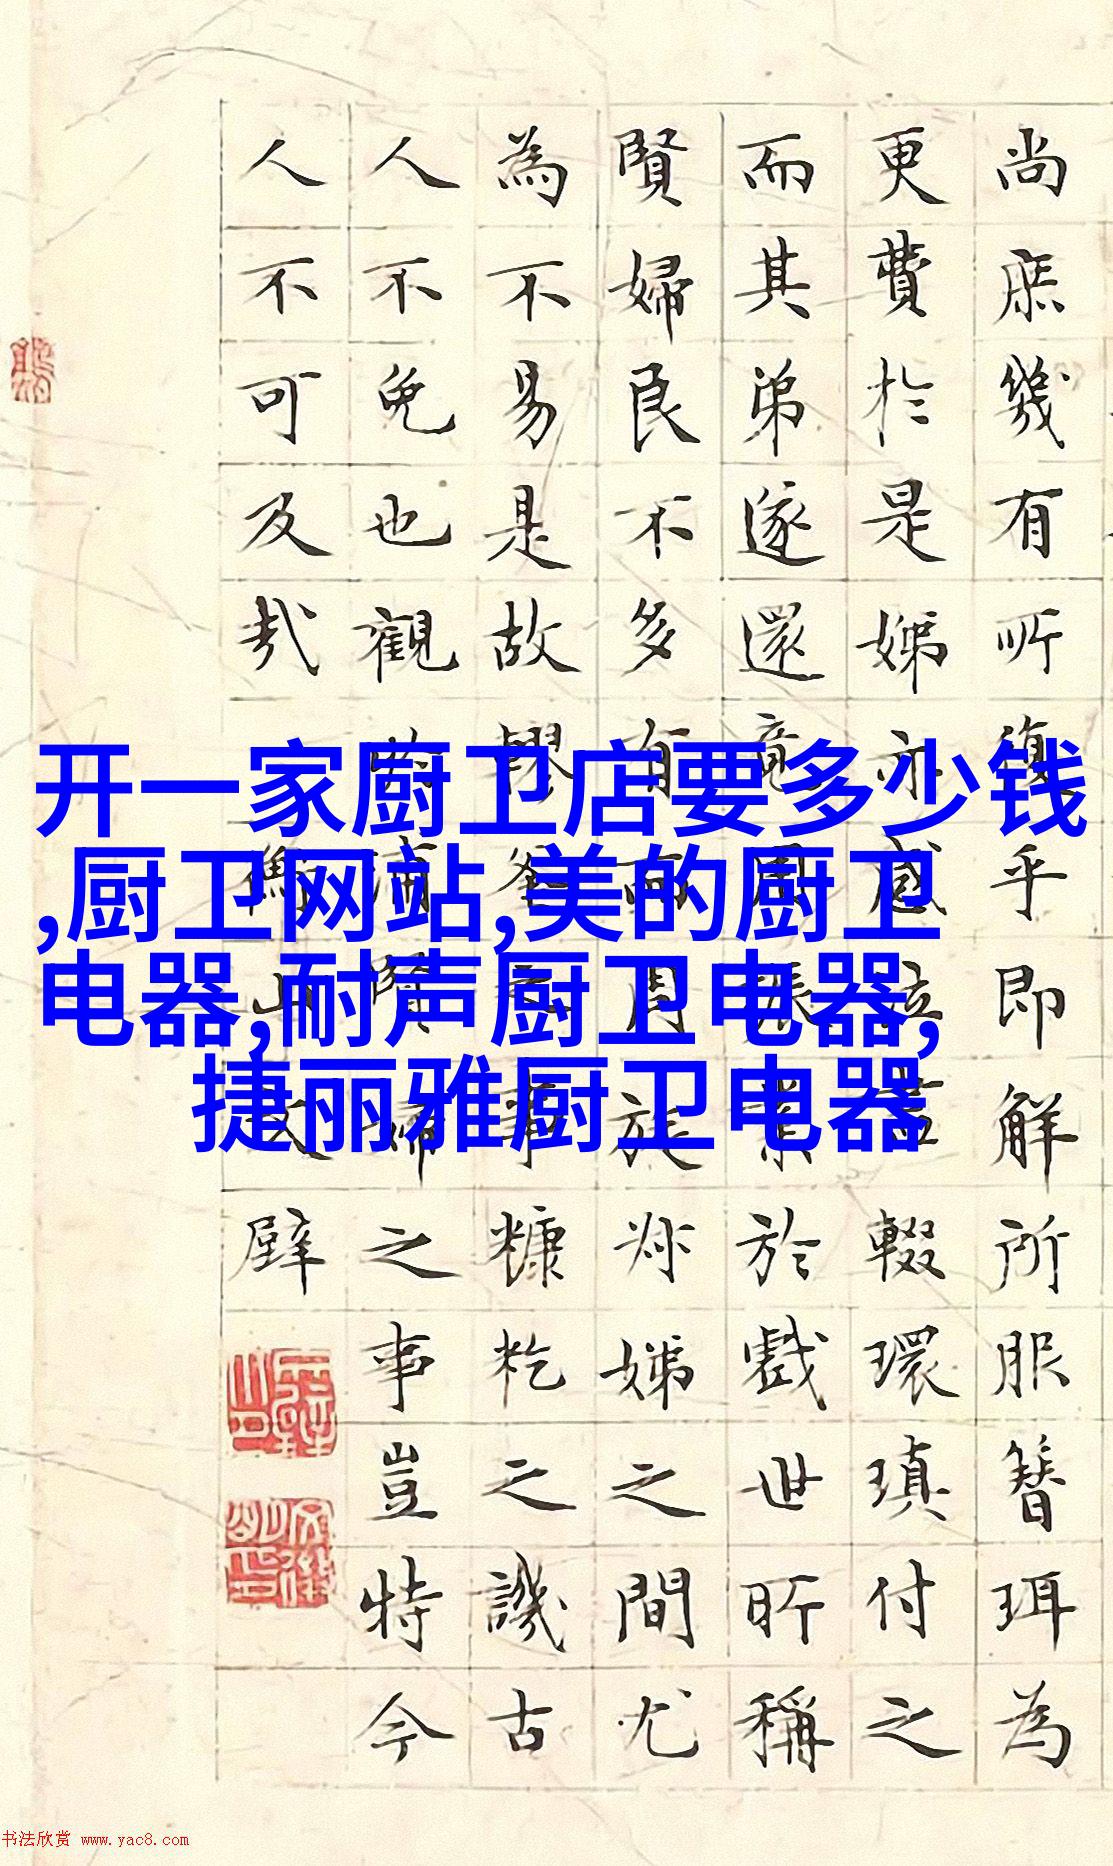 开一家厨卫店要多少钱
,厨卫网站,美的厨卫
电器,耐声厨卫电器,
捷丽雅厨卫电器
尚庶幾有所復乎即解所服簪珥為
更費於是娣亦感泣輟環瑱付之
而其弟遂還竟周振業於戲世所稱
賢婦良不多有而周旋娣之間尤
為不易是故轑釜事糠籺之譏古
人不免也觀婦之事豈特今
人不可及哉山文壁
书法欣赏 www.yac8.com